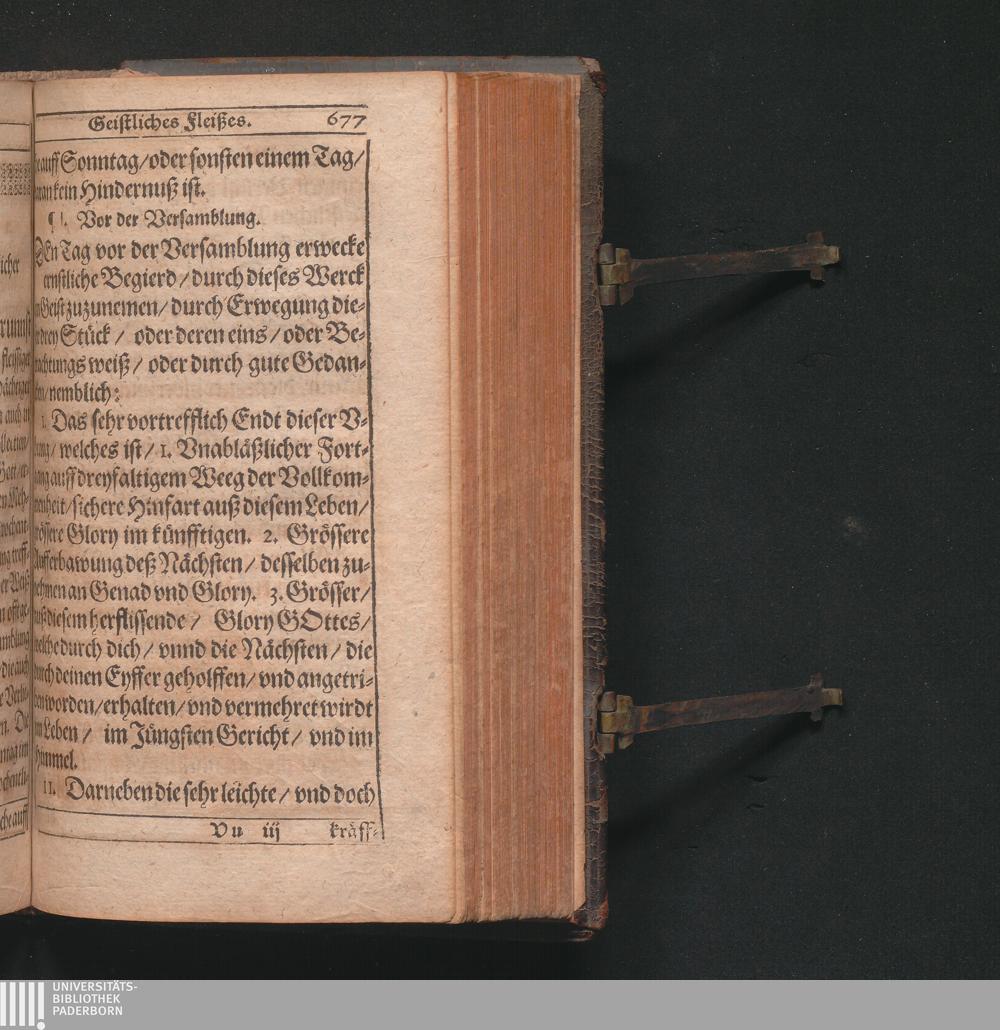 Geistliches Fleißes. 677
auff Sonntag/oder sonsten einem Tag/
kein Hindernuß ist.
¶ I. Vor der Versamblung.
DEn Tag vor der Versamblung erwecke
ernstliche Begierd/durch dieses Werck
Geist zuzunemen/durch Erwegung die-
drey Stück/ oder deren eins/oder Be-
trachtungs weiß/ oder durch gute Gedan-
nemblich:
I. Das sehr vortrefflich Endt dieser V-
welches ist/1. Vnabläßlicher Fort-
gang auff dreyfaltigem Weeg der Vollkom-
menheit/sichere Hinfart auß diesem Leben/
grössere Glory im künfftigen. 2. Grössere
Aufferbawung deß Nächsten/ desselben zu-
nehmen an Genad vnd Glory. 3. Grösser/
auß diesem herflissende/ Glory GOttes/
welche durch dich/ vnnd die Nächsten/ die
durch deinen Eyffer geholffen/ vnd angetri-
ben worden/erhalten/vnd vermehret wirdt
im Leben/ im Jüngsten Gericht/ vnd im
Himmel.
II. Darneben die sehr leichte/ vnd doch
Vu iij kräff-
UNIVERSITÄTS-
BIBLIOTHEK
PADERBORN